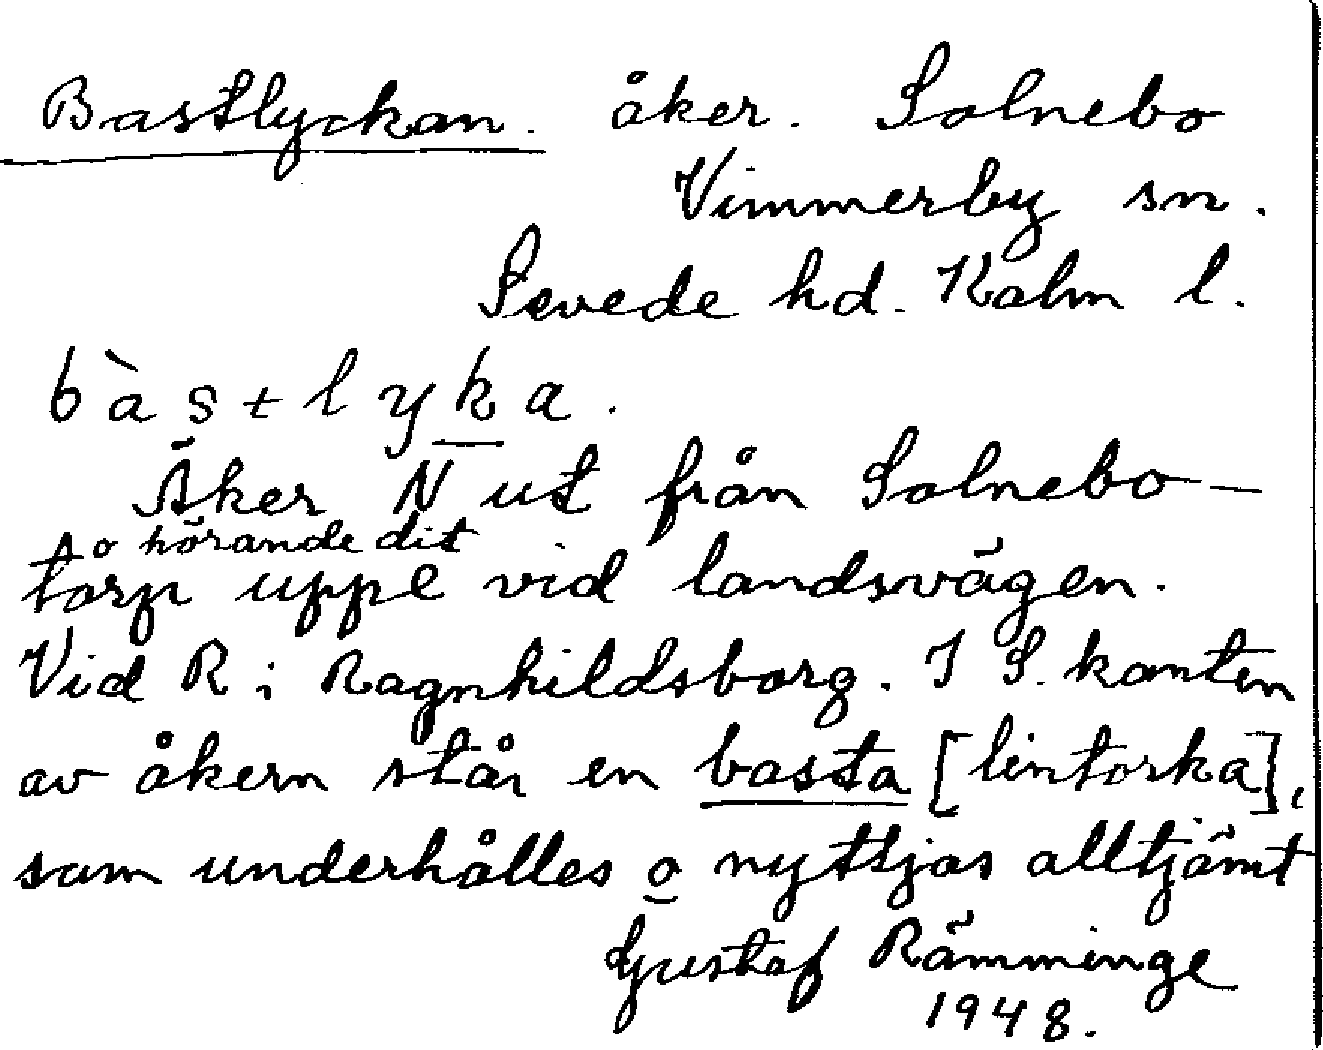 Bastlyckan. åker. Solnebo
Vimmerby sn.
Sevede hd. Kalm l.
bàstlyka.
Åker N ut från Solnebo-
torp o hörande dit uppe vid landsvägen.
Vid R i Ragnhildsborg. I S. kanten
av åkern står en basta [lintorka],
som underhålles o nyttjas alltjämt
Gustaf Rämminge
1948.